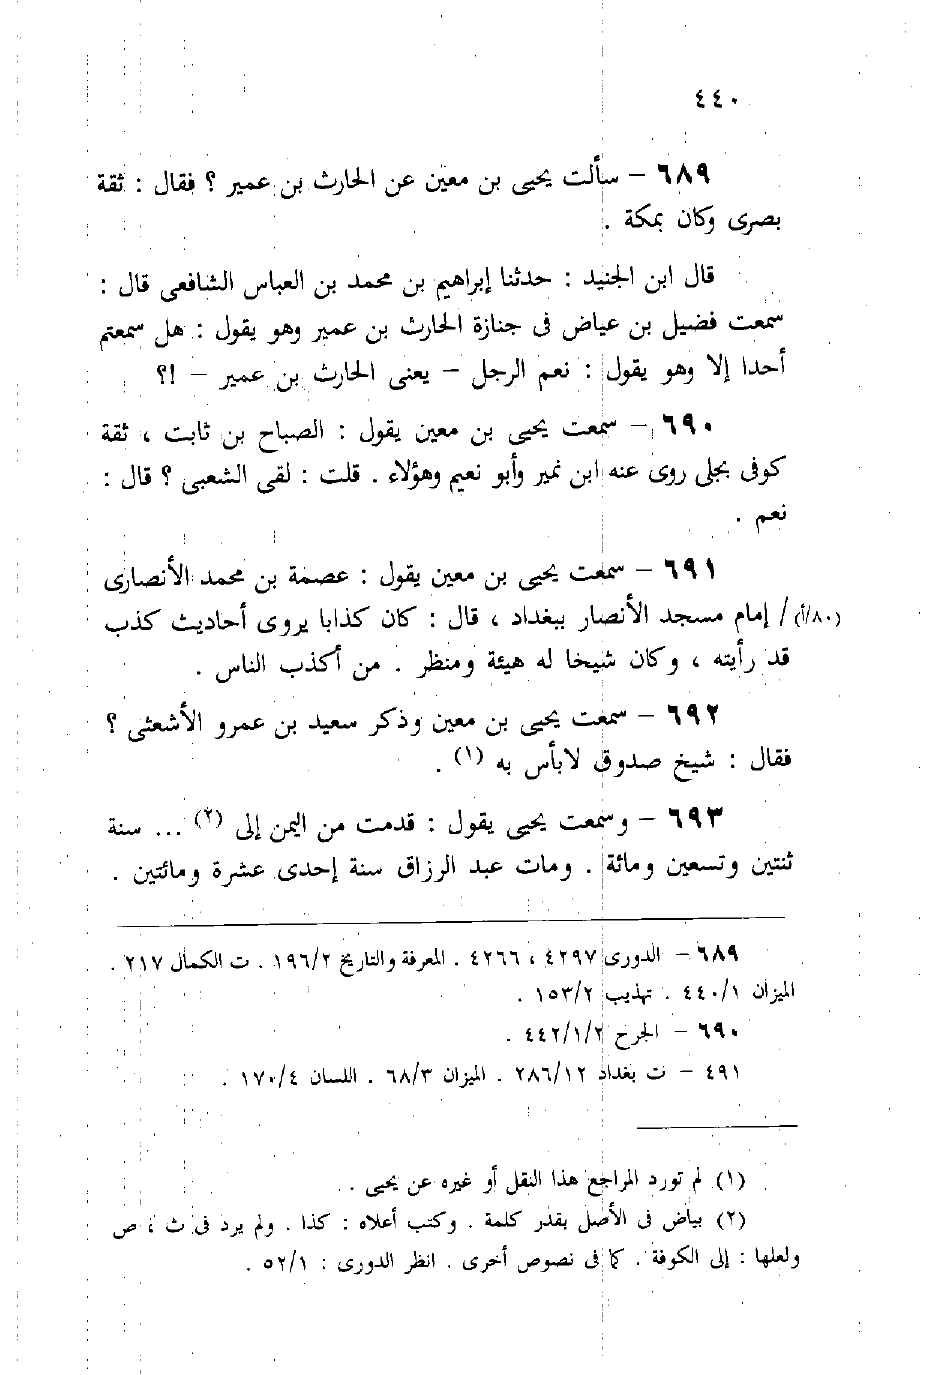 ٤٤٠
٦٨٩ – سألت يحيى بن معين عن الحارث بن عمير ؟ فقال : ثقة
بصرى وكان بمكة .
قال ابن الجنيد : حدثنا إبراهيم بن محمد بن العباس الشافعى قال :
سمعت فضيل بن عياض فى جنازة الحارث بن عمير وهو يقول : هل سمعتم
أحدا إلا وهو يقول : نعم الرجل – يعنى الحارث بن عمير – ؟!
٦٩٠ – سمعت يحيى بن معين يقول : الصباح بن ثابت ، ثقة
كوفى بجلى روى عنه ابن نمير وأبو نعيم وهؤلاء . قلت : لقى الشعبى ؟ قال :
نعم .
٦٩١ – سمعت يحيى بن معين يقول : عصمة بن محمد الأنصارى
(٨٠/أ) / إمام مسجد الأنصار ببغداد ، قال : كان كذابا يروى أحاديث كذب
قد رأيته ، وكان شيخا له هيئة ومنظر . من أكذب الناس .
٦٩٢ – سمعت يحيى بن معين وذكر سعيد بن عمرو الأشعثى ؟
فقال : شيخ صدوق لابأس به (١) .
٦٩٣ – وسمعت يحيى يقول : قدمت من اليمن إلى (٢) ... سنة
ثنتين وتسعين ومائة . ومات عبد الرزاق سنة إحدى عشرة ومائتين .
٦٨٩ – الدورى ٤٢٩٧ ، ٤٢٦٦ . المعرفة والتاريخ ١٩٦/٢ . ت الكمال ٢١٧ .
الميزان ٤٤٠/١ . تهذيب ١٥٣/٢ .
٦٩٠ – الجرح ٤٤٢/١/٢ .
٤٩١ – ت بغداد ٢٨٦/١٢ . الميزان ٦٨/٣ . اللسان ١٧٠/٤ .
(١) لم تورد المراجع هذا النقل أو غيره عن يحيى .
(٢) بياض فى الأصل بقدر كلمة . وكتب أعلاه : كذا . ولم يرد فى ث ، ص
ولعلها : إلى الكوفة . كما فى نصوص أخرى . انظر الدورى : ٥٢/١ .